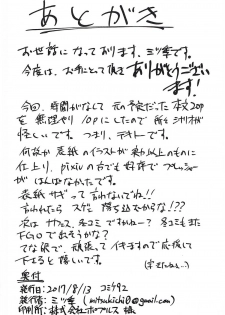 あとがき
お世話になっております、ミツ季です。
今度は、お手にとって頂き
ありがとうござい
ます!
今回、時間がなくて元の予定だった本文20p
を無理やり10pにしたので
怪しいです。つまり、テキトーです。
何故か表紙のイラストが予想以上のものに
仕上り、pixivの方でも好評でプレッシャー
がはんぱなかったです。
表紙サギって言わないでね!!
言われたらスゲェ落ち込むからな!??
次はサファ、冬コミですねー?冬コミもまた
FGOで出そうかな?
てな訳で、頑張ってイキますので応援して
下さると嬉しいです。
奥付
発行日:2017/8/13 コミケ92
発行者:ミツ季 (mitsukichi0@gmail.com)
印刷所:株式会社ポプルス 様